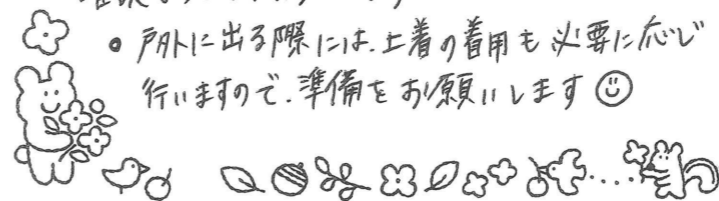 • 戸外に出る際には、上着の着用も必要に応じ
行いますので、準備をお願いします☺